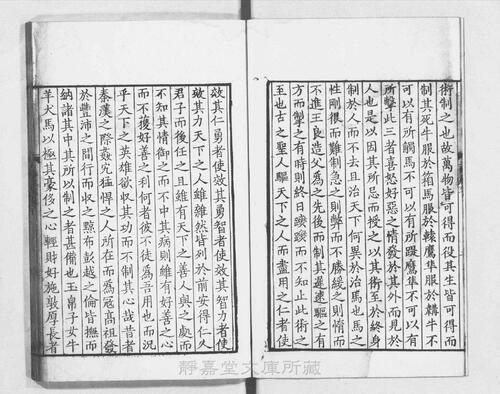 術制之也故萬物皆可得而役其生皆可得而
制其死牛服於箱馬服於轅鷹隼服於韝牛不
可以有所觸馬不可以有所蹏鷹隼不可以有
所擊此三者喜怒好惡之情發於其外而見於
人也是以因其所忌而授之以其術至於終身
制於人而不去且治天下何異於治馬也馬之
性剛很而難制急之則弊而不勝緩之則惰而
不進王良造父為之先後而制其遲速驅之有
方而掣之有時則終日蹊蹊而不知止此術之
至也古之聖人驅天下之人而盡用之仁者使
效其仁勇者使效其勇智者使效其智力者使
效其力天下之人雖雜然皆列於前安得仁人
君子而後任之且雖有天下之善人與之處而
不知其情御之而不中其病則雖有好善之心
而不獲好善之利何者彼不徒為吾用也而況
乎天下之英雄欲收其功而不制其心哉昔者
秦漢之際姦宄猛悍之人所在而為寇高祖發
於豐沛之間行而收之黥布彭越之倫皆撫而
納諸其中其所以制之者甚備也玉帛子女牛
羊犬馬以極其豪侈之心輕財好施敦厚長者
靜嘉堂文庫所藏